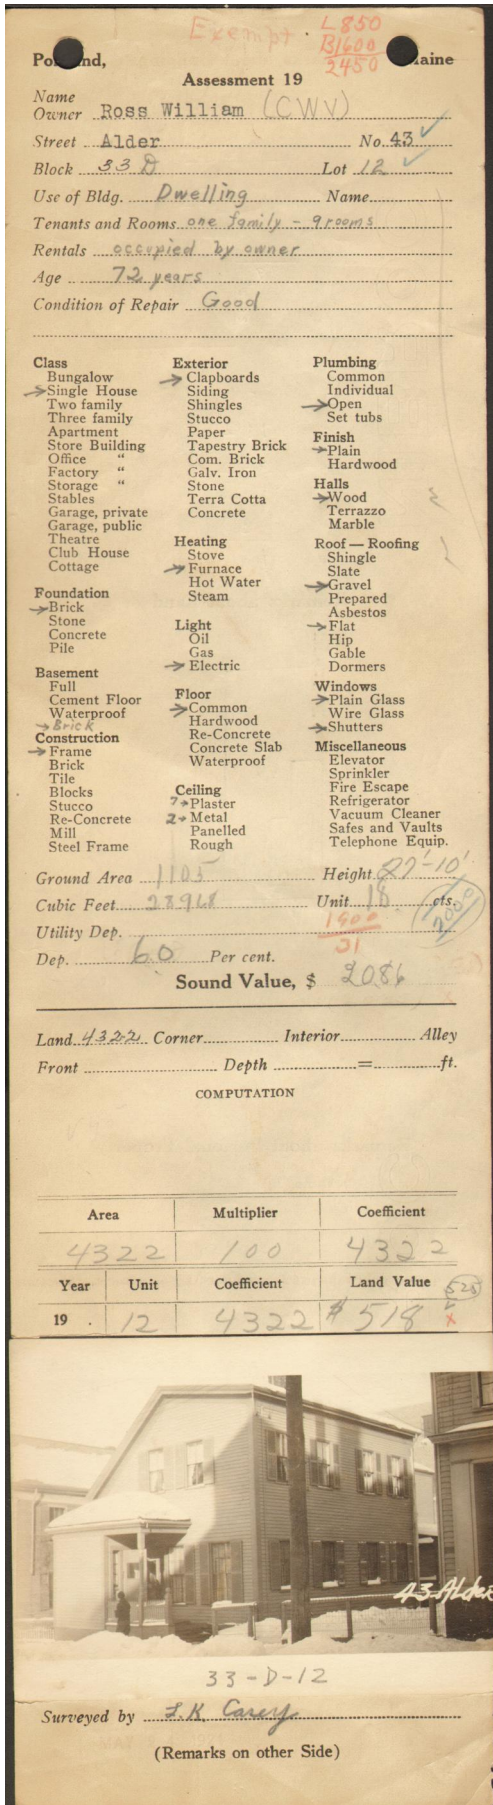 Exempt. L 850
B1600
2450
Portland, Maine
Assessment 19
Name
Owner Ross William (CWV)
Street Alder No. 43
Block 33 D Lot 12
Use of Bldg. Dwelling Name
Tenants and Rooms one family - 9 rooms
Rentals occupied by owner
Age 72 years
Condition of Repair Good
Class
Bungalow
Single House
Two family
Three family
Apartment
Store Building
Office "
Factory "
Storage "
Stables
Garage, private
Garage, public
Theatre
Club House
Cottage
Foundation
Brick
Stone
Concrete
Pile
Basement
Full
Cement Floor
Waterproof
Brick
Construction
Frame
Brick
Tile
Blocks
Stucco
Re-Concrete
Mill
Steel Frame
Exterior
Clapboards
Siding
Shingles
Stucco
Paper
Tapestry Brick
Com. Brick
Galv. Iron
Stone
Terra Cotta
Concrete
Heating
Stove
Furnace
Hot Water
Steam
Light
Oil
Gas
Electric
Floor
Common
Hardwood
Re-Concrete
Concrete Slab
Waterproof
Ceiling
7 Plaster
2 Metal
Panelled
Rough
Plumbing
Common
Individual
Open
Set tubs
Finish
Plain
Hardwood
Halls
Wood
Terrazzo
Marble
Roof — Roofing
Shingle
Slate
Gravel
Prepared
Asbestos
Flat
Hip
Gable
Dormers
Windows
Plain Glass
Wire Glass
Shutters
Miscellaneous
Elevator
Sprinkler
Fire Escape
Refrigerator
Vacuum Cleaner
Safes and Vaults
Telephone Equip.
Ground Area 1105 Height 27'-10'
Cubic Feet 28968 Unit 18 cts. 2000
Utility Dep. 1900
31
Dep. 60 Per cent.
Sound Value, $ 2086
Land 4322 Corner Interior Alley
Front Depth = ft.
COMPUTATION
Area Multiplier Coefficient
4322 100 4322
Year Unit Coefficient Land Value 525
19 . 12 4322 $ 518 x
43-Alder
33-D-12
Surveyed by L.K. Carey
(Remarks on other Side)